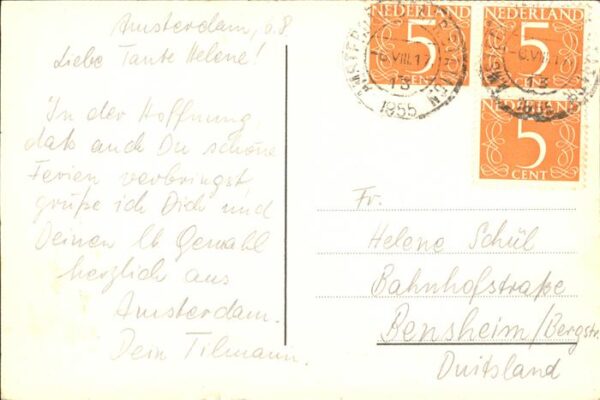 Amsterdam, 6.8
Liebe Tante Helene!
In der Hoffnung,
daß auch Du schöne
Ferien verbringst,
grüße ich Dich und
Deinen lb Gemahl
herzlich aus
Amsterdam.
Dein Tilmann.
NEDERLAND
5
CENT
NEDERLAND
5
NEDERLAND
5
CENT
6.VIII.17
13
1955
VIII.17
13
Fr.
Helene Schül
Bahnhofstraße
Bensheim/Bergstr.
Duitsland